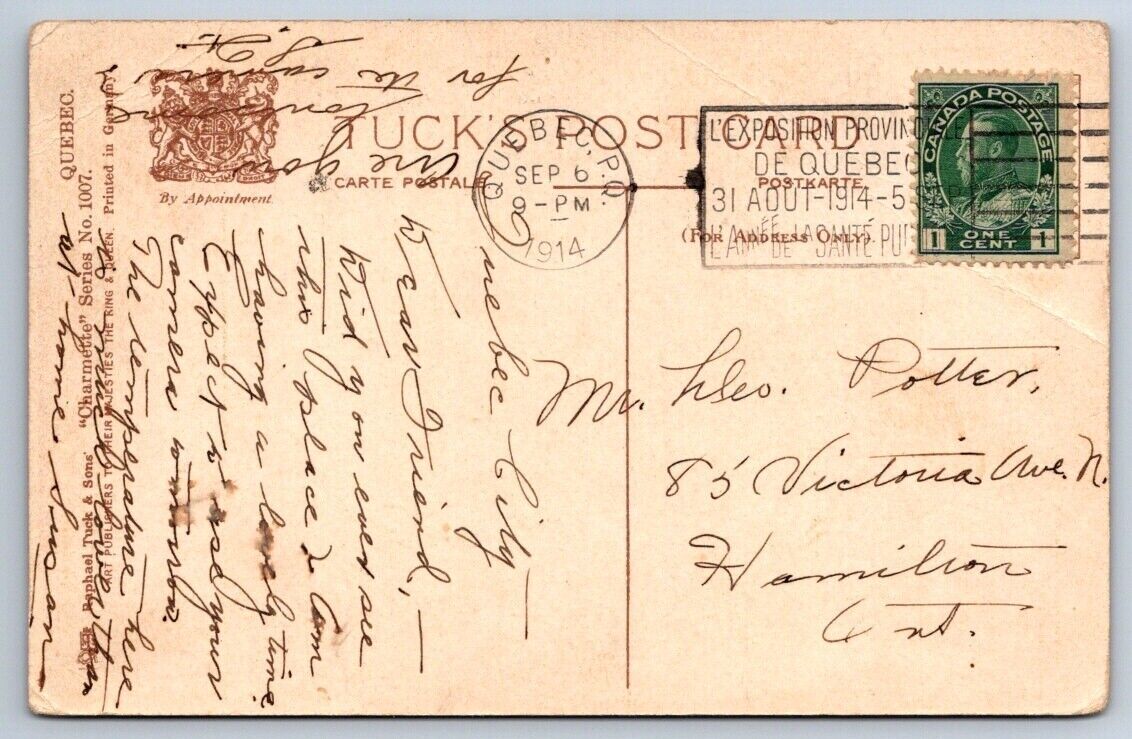 TUCK'S POST CARD
CARTE POSTALE
POSTKARTE
(FOR ADDRESS ONLY).
By Appointment.
QUEBEC, P.Q.
SEP 6
9-PM
1914
L'EXPOSITION PROVINCIALE
DE QUEBEC
31 AOUT-1914-5
CANADA POSTAGE
1 ONE CENT 1
Mr. Geo. Potter,
85 Victoria Ave. N.
Hamilton
Ont.
Quebec City
Dear Friend,—
Did you ever see
this place I am
having a lovely time
Expect to use your
camera to-morrow.
The temperature here
is much lower than
at home. Sincere
are you
for the camera
QUEBEC.
Raphael Tuck & Sons' "Charmette" Series No. 1007.
ART PUBLISHERS TO THEIR MAJESTIES THE KING & QUEEN. Printed in Germany.